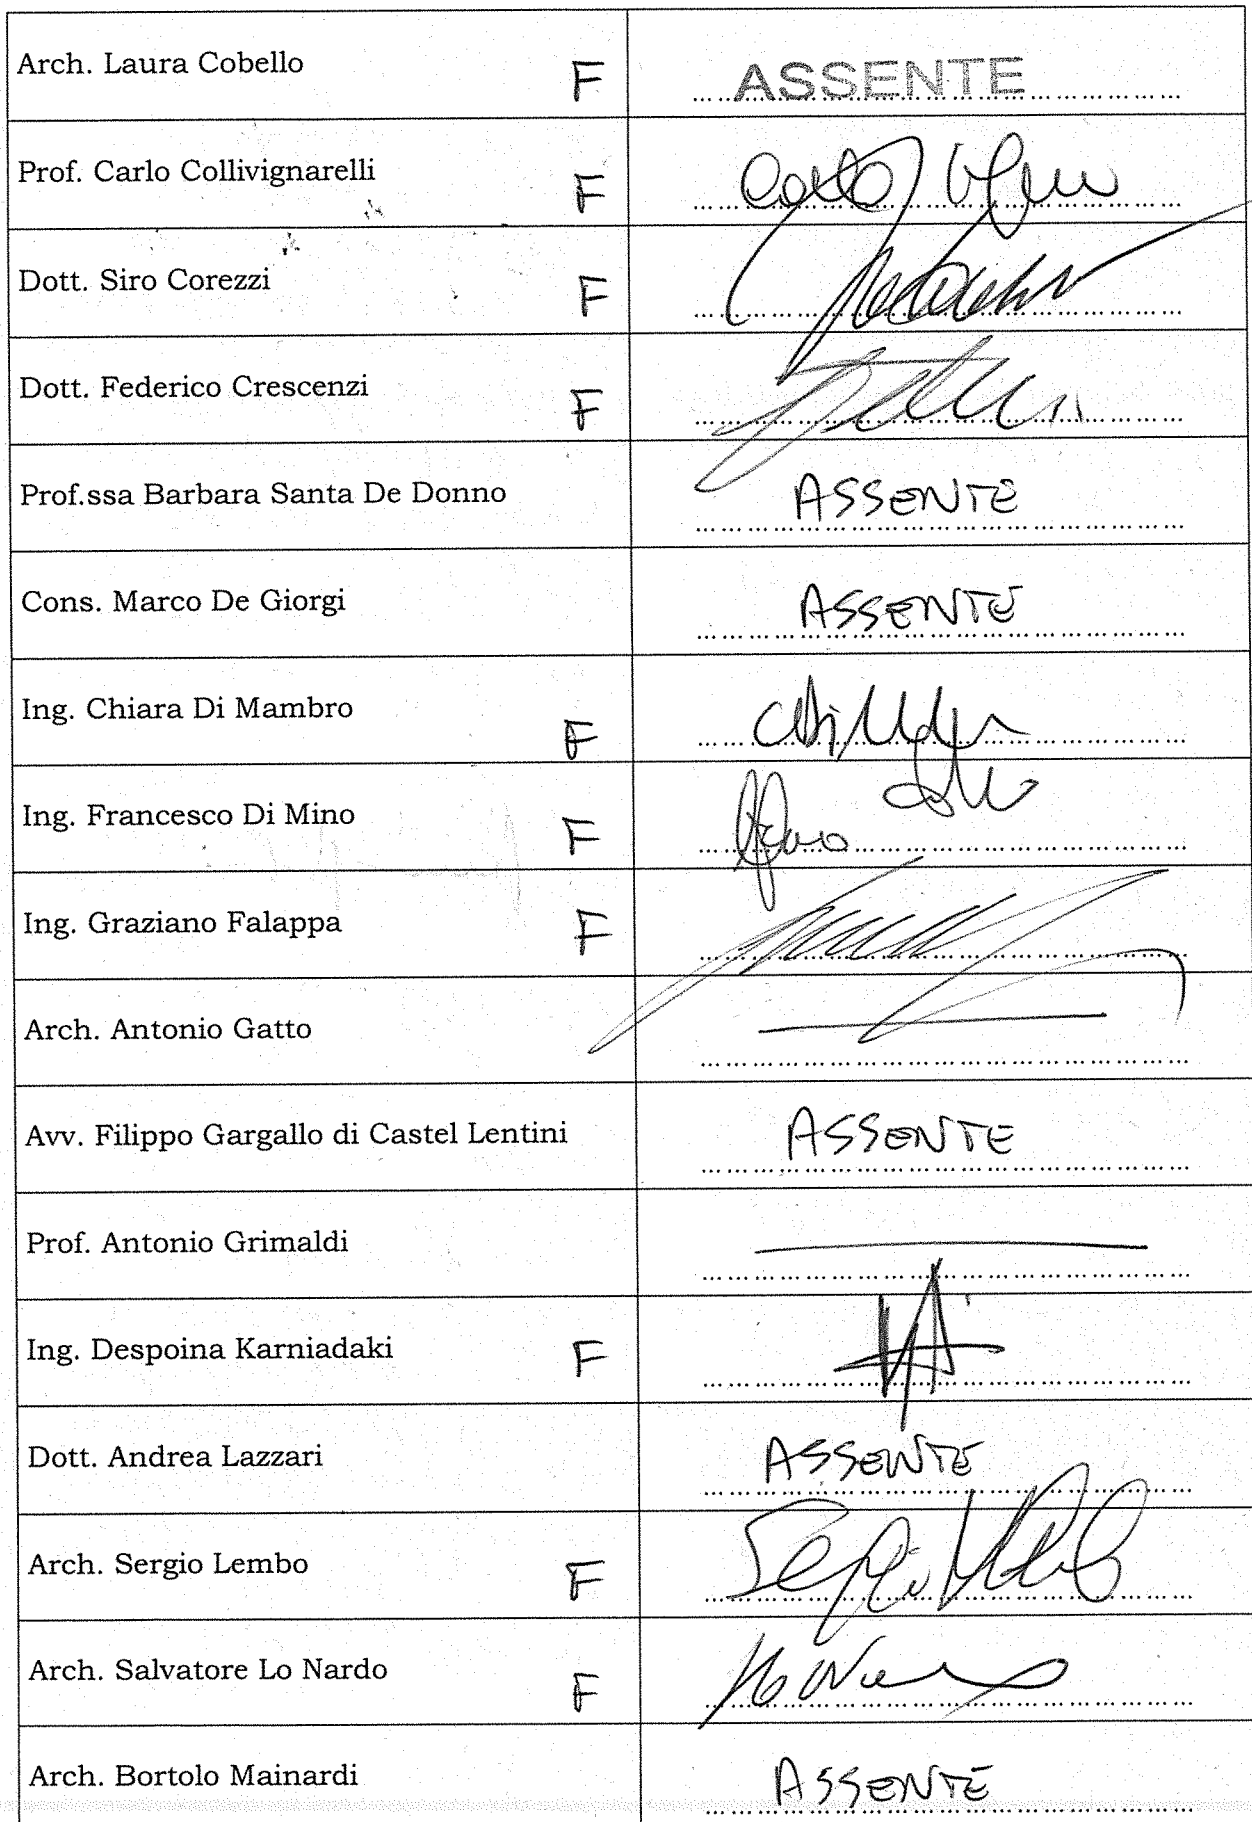 Arch. Laura Cobello F ASSENTE
Prof. Carlo Collivignarelli F
Dott. Siro Corezzi F
Dott. Federico Crescenzi F
Prof.ssa Barbara Santa De Donno ASSENTE
Cons. Marco De Giorgi ASSENTE
Ing. Chiara Di Mambro F
Ing. Francesco Di Mino F
Ing. Graziano Falappa F
Arch. Antonio Gatto
Avv. Filippo Gargallo di Castel Lentini ASSENTE
Prof. Antonio Grimaldi
Ing. Despoina Karniadaki F
Dott. Andrea Lazzari ASSENTE
Arch. Sergio Lembo F
Arch. Salvatore Lo Nardo F
Arch. Bortolo Mainardi ASSENTE